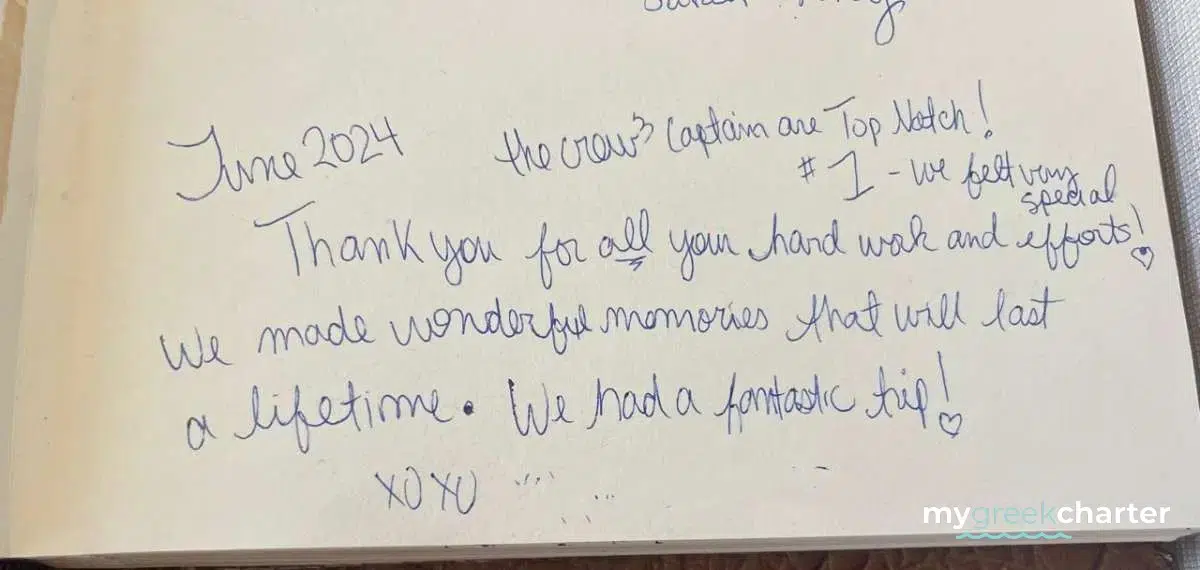 June 2024
the crew & Captain are Top Notch!
#1 - we felt very
special
Thank you for all your hard work and efforts!
We made wonderful memories that will last
a lifetime. We had a fantastic trip!
XOXO
mygreekcharter